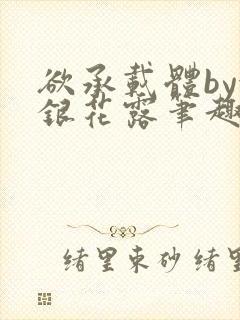 欲承載體by
銀花露筆趣
緒里束砂 緒里